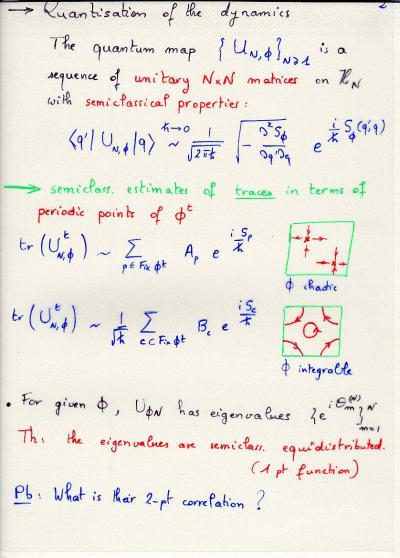 → Quantisation of the dynamics
2
The quantum map {U_{N,ϕ}}_{N≥1} is a
sequence of unitary N×N matrices on ℋ_N
with semiclassical properties:
⟨q'| U_{N,ϕ} |q⟩ ~^{ℏ→0} 1/√(2πℏ) √(-∂²S_ϕ/∂q'∂q) e^{i/ℏ S_ϕ(q',q)}
→ semiclass. estimates of traces in terms of
periodic points of ϕ^t
tr(U^t_{N,ϕ}) ~ ∑_{p∈Fix ϕ^t} A_p e^{i S_p/ℏ}
ϕ chaotic
tr(U^t_{N,ϕ}) ~ 1/√ℏ ∑_{c⊂Fix ϕ^t} B_c e^{i S_c/ℏ}
ϕ integrable
• For given ϕ, U_{ϕN} has eigenvalues {e^{iθ_m^{(N)}}}_{m=1}^N
Th: the eigenvalues are semiclass. equidistributed.
(1 pt function)
Pb: What is their 2-pt correlation?